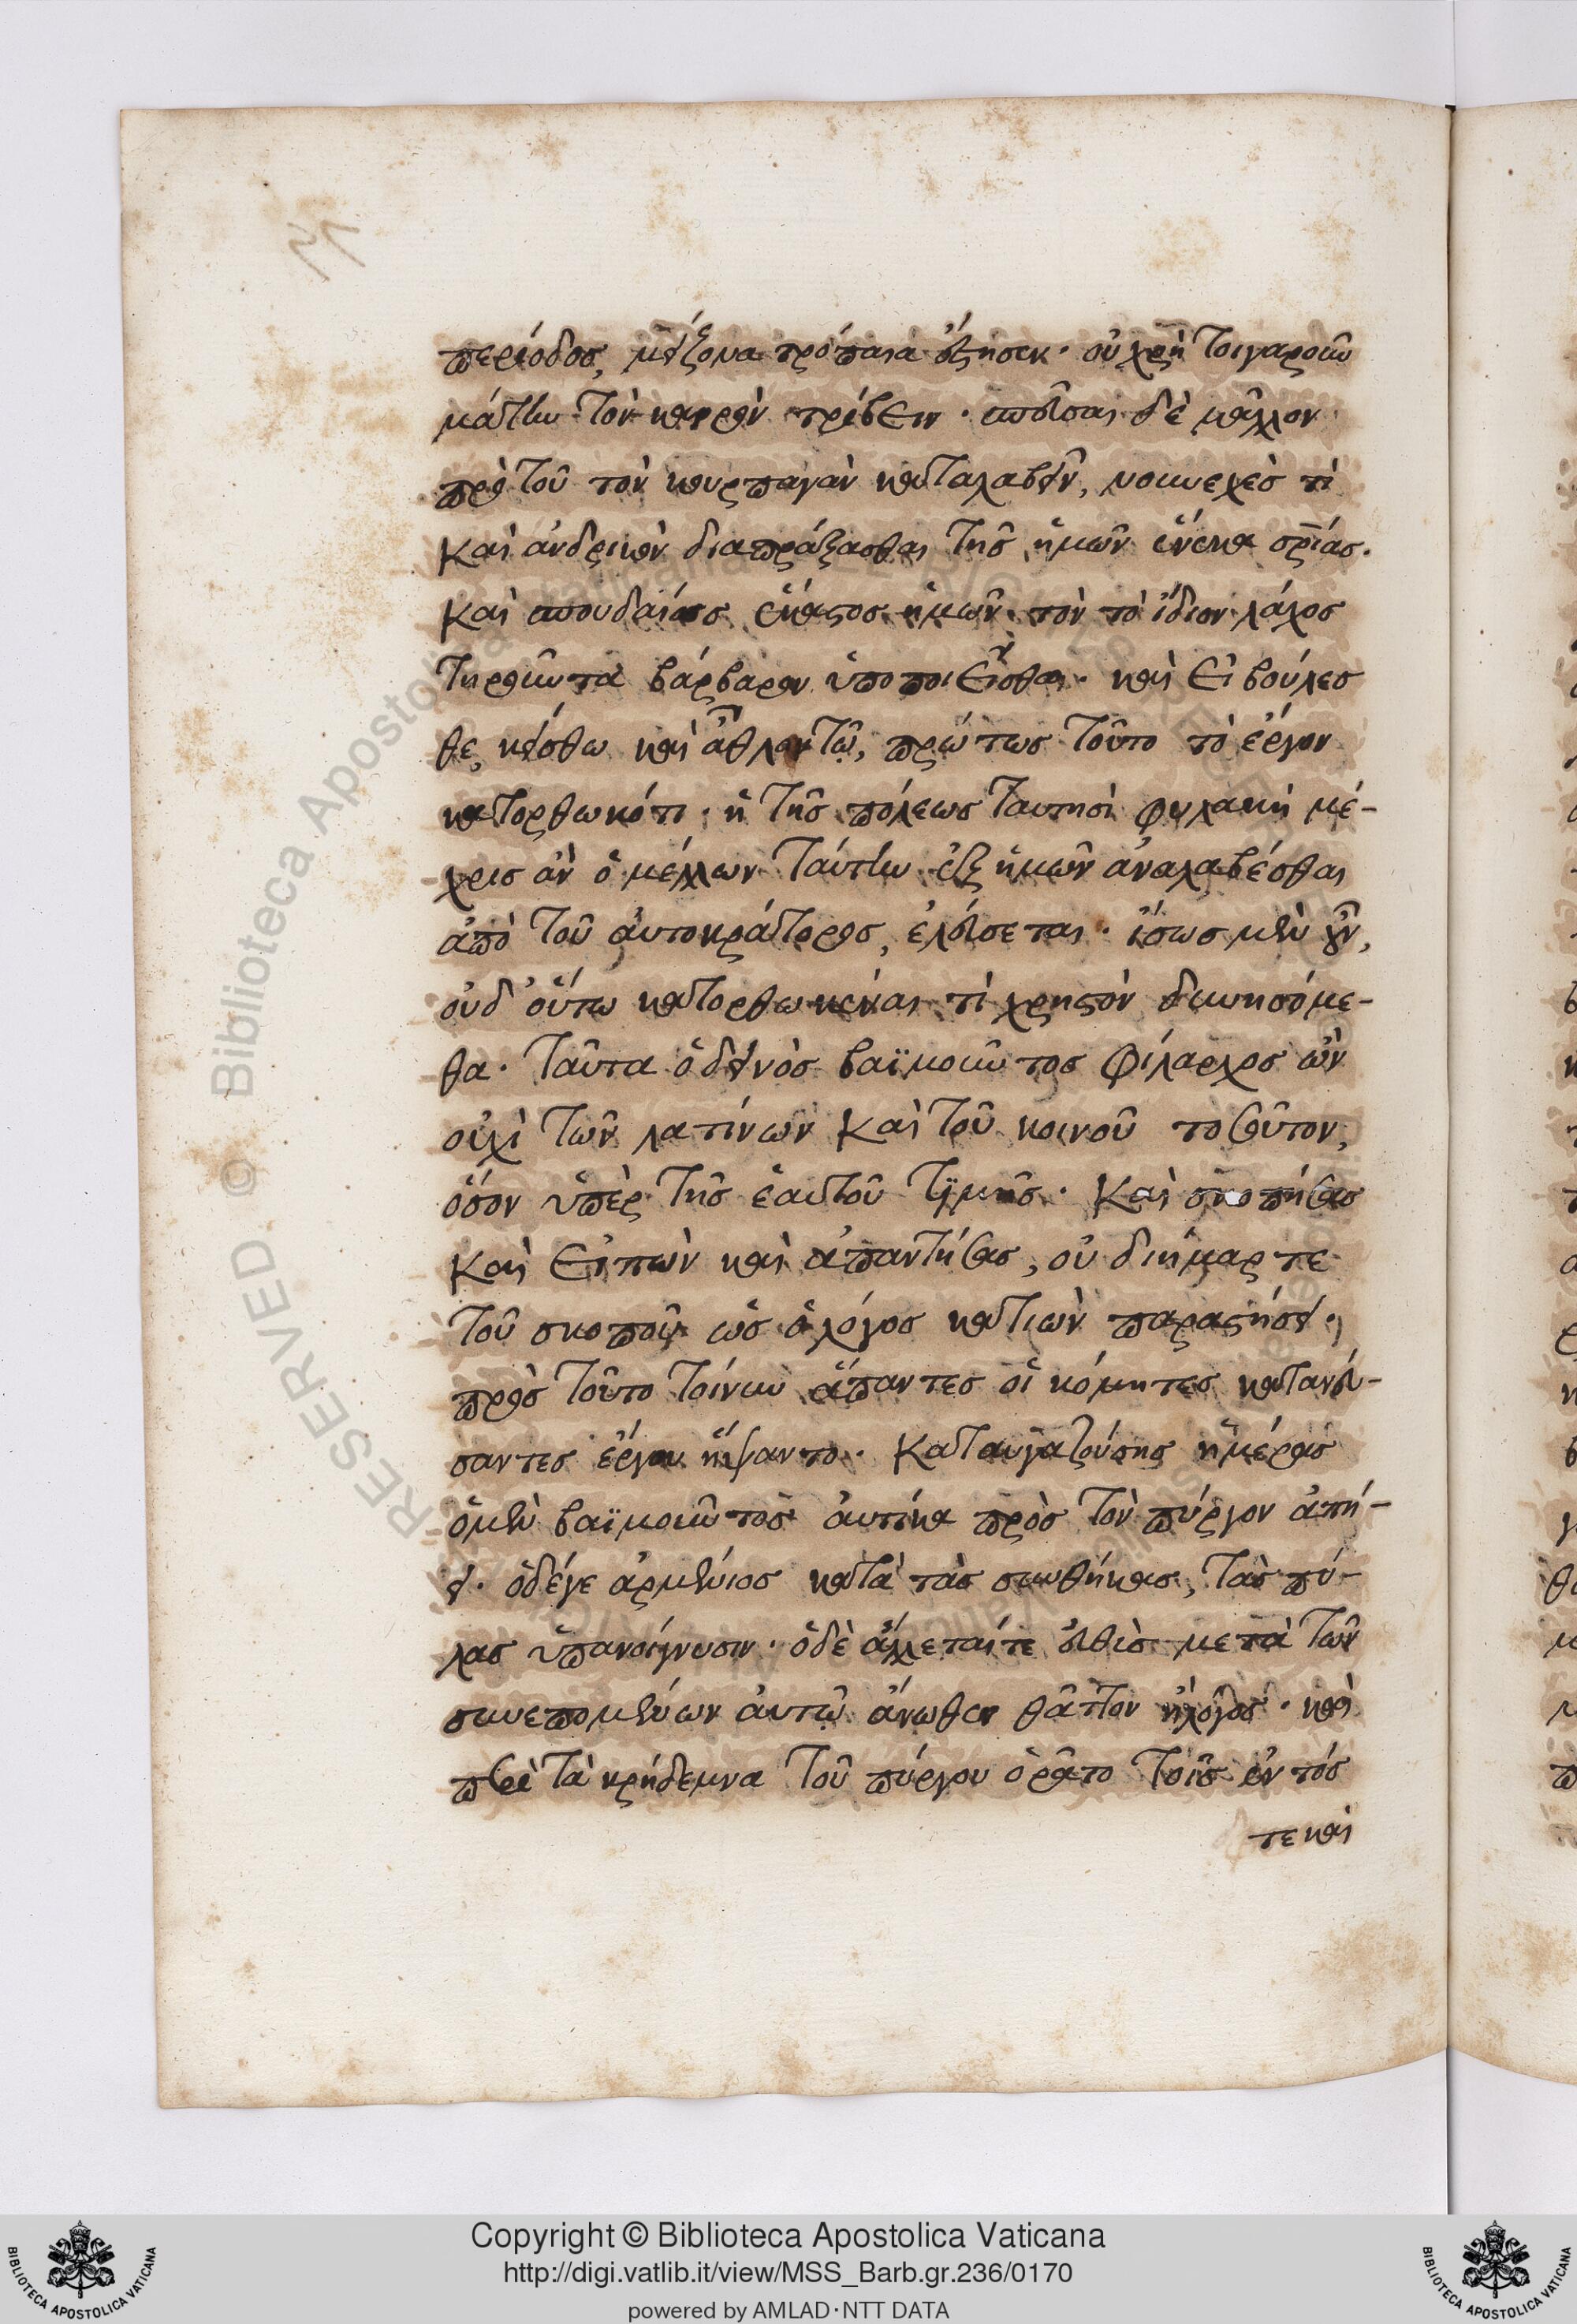 περίοδος, μείζονα τρόπαια ἔστησεν. οὐ χρὴ τοιγαροῦν
μάτην τὸν καιρὸν τρίβειν. σπεῦσαι δὲ μᾶλλον
πρὸ τοῦ τὸν κουρπαγὰν καταλαβεῖν, νουνεχὲς τὶ
καὶ ἀνδρικὸν διαπράξασθαι τῆς ἡμῶν ἕνεκα σρίας.
καὶ σπουδαίως ἕκαστος ἡμῶν τὸν τὸ ἴδιον λάχος
τηροῦντα βάρβαρον ὑποποιεῖσθαι. καὶ εἰ βούλεσ
θε, κείσθω καὶ ἆθλον τῷ, πρώτως τοῦτο τὸ ἔργον
κατορθωκότι. ἡ τῆς πόλεως ταυτησὶ φυλακὴ μέ-
χρις ἂν ὁ μέλλων ταύτην ἐξ ἡμῶν ἀναλαβέσθαι
ἀπὸ τοῦ αὐτοκράτορος, ἐλεύσεται. ἴσως μὲν οὖν,
οὐδ' οὕτω κατορθωκέναι τὶ χρηστὸν δυνησόμε-
θα. ταῦτα ὁ δεινὸς βαϊμοῦντος φίλαρχος ὢν
οὐχὶ τῶν λατίνων καὶ τοῦ κοινοῦ τοσοῦτον,
ὅσον ὑπὲρ τῆς ἑαυτοῦ τϊμῆς. καὶ σκοπήσας
καὶ εἰπὼν καὶ ἀπαντήσας, οὐ διήμαρτε
τοῦ σκοποῦ ὡς ὁ λόγος κατιὼν παραστήσει.
πρὸς τοῦτο τοίνυν ἅπαντες οἱ κόμητες κατανεύ-
σαντες ἔργου ἥψαντο. καταυγαζούσης ἡμέρας
ὁ μὲν βαϊμοῦντος αὐτίκα πρὸς τὸν πύργον ἀπή-
ει. ὁ δέγε ἀρμένιος κατὰ τὰς συνθήκας, τὰς πύ-
λας ὑπανοίγνυσιν. ὁ δὲ ἅλλεταίτε εὐθὺς μετὰ τῶν
συνεπομένων αὐτῷ ἄνωθεν θᾶττον ἢ λόγος. καὶ
περὶ τὰ κρήδεμνα τοῦ πύργου ὁρᾶτο τοῖς ἐντός
τε καὶ
Copyright © Biblioteca Apostolica Vaticana
http://digi.vatlib.it/view/MSS_Barb.gr.236/0170
powered by AMLAD·NTT DATA